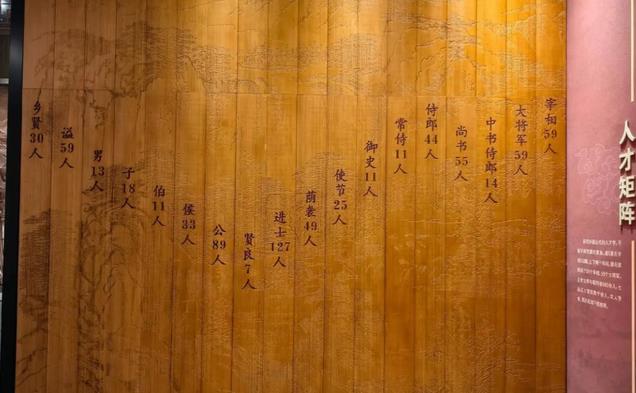 宰相59人
大将军59人
中书侍郎14人
尚书55人
侍郎44人
常侍11人
御史11人
使节25人
荫袭49人
进士127人
贤良7人
公89人
侯33人
伯11人
子18人
男13人
谥59人
乡贤30人
人才矩阵